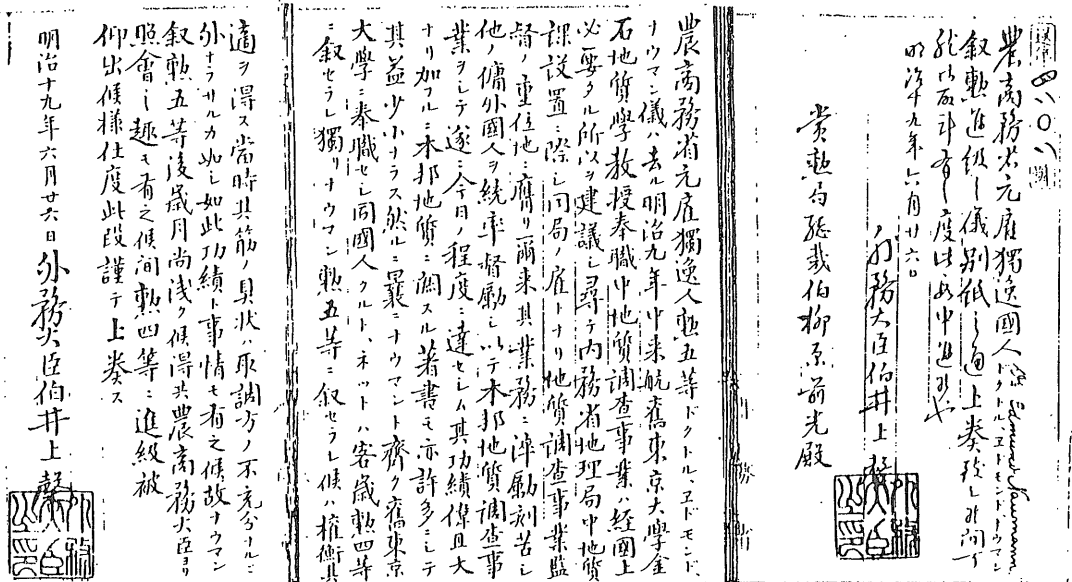 農商務省元雇獨逸國人ドクトル、エドモンドナウマン
Edmund Naumann
叙勲進級之儀別紙之通上奏致し候間可
然御取計有之度此段申進候也
明治十九年六月廿六日
外務大臣伯井上馨
賞勲局總裁伯柳原前光殿
農商務省元雇獨逸人勲五等ドクトル、エドモンド、
ナウマン儀ハ去ル明治九年中来航舊東京大學金
石地質學教授奉職中地質調査事業ハ経國上
必要タル所以ヲ建議シ尋テ内務省地理局中地質
課設置ニ際シ同局ノ雇トナリ地質調査事業監
督ノ重任地ニ膺リ爾来其業務ニ淬勵刻苦シ
他ノ傭外國人ヲ統率督勵シ以テ本邦地質調査事
業ヲシテ遂ニ今日ノ程度ニ達セシム其功績偉且大
ナリ加フルニ本邦地質ニ關スル著書モ亦許多ニシテ
其益少小ナラス然ルニ曩ニナウマント齊ク舊東京
大學ニ奉職セシ同國人クルト、ネットハ客歳勲四等
ニ叙セラレ獨リナウマン勲五等ニ叙セラレ候ハ權衡其
適ヲ得ス當時其筋ノ具状ハ取調方ノ不充分ナルニ
外ナラサルカ如シ如此功績ト事情モ有之候故ナウマン
叙勲五等後歳月尚浅ク候得共農商務大臣ヨリ
照會之趣モ有之候間勲四等ニ進級被
仰出候様仕度此段謹テ上奏ス
明治十九年六月廿六日
外務大臣伯井上馨
外務大臣之印